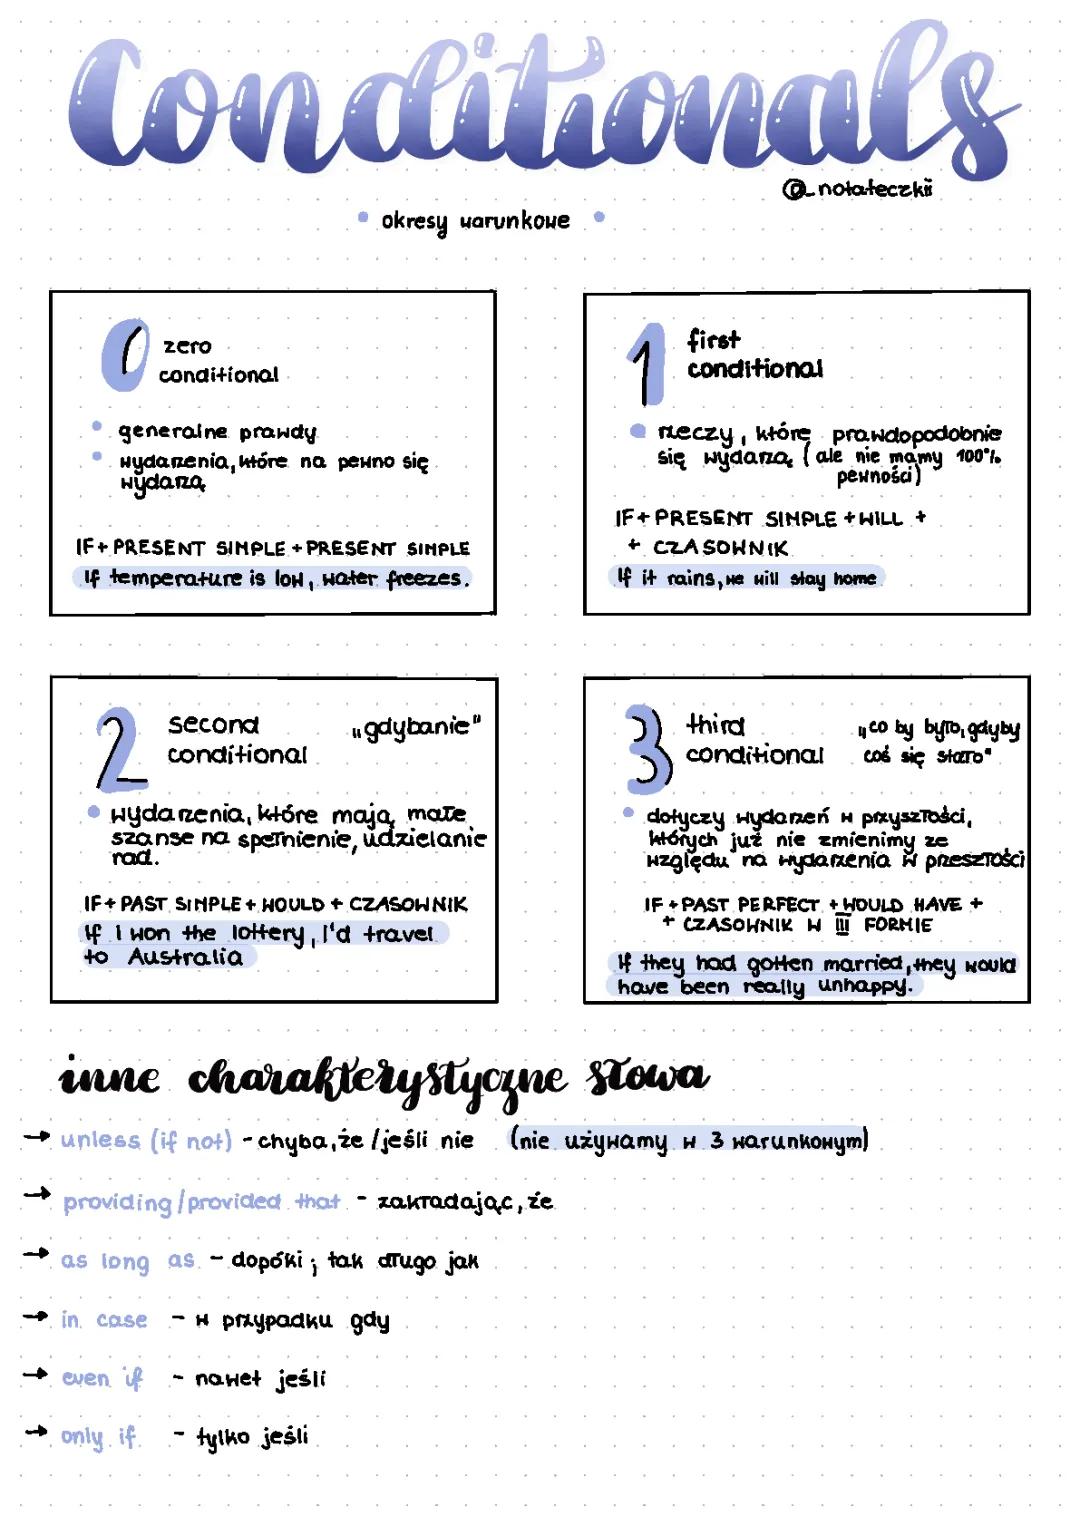 Conditionals
@_notateczkii
• okresy warunkowe •
0 zero
conditional
• generalne prawdy
• wydarzenia, które na pewno się
wydarzą
IF + PRESENT SIMPLE + PRESENT SIMPLE
If temperature is low, water freezes.
1 first
conditional
• rzeczy, które prawdopodobnie
się wydarzą (ale nie mamy 100%
pewności)
IF + PRESENT SIMPLE + WILL +
+ CZASOWNIK
If it rains, we will stay home
2 second „gdybanie"
conditional
• wydarzenia, które mają małe
szanse na spełnienie, udzielanie
rad.
IF + PAST SIMPLE + WOULD + CZASOWNIK
If I won the lottery, I'd travel
to Australia
3 third „co by było, gdyby
conditional coś się stało"
• dotyczy wydarzeń w przyszłości,
których już nie zmienimy ze
względu na wydarzenia w przeszłości
IF + PAST PERFECT + WOULD HAVE +
+ CZASOWNIK W III FORMIE
If they had gotten married, they would
have been really unhappy.
inne charakterystyczne słowa
→ unless (if not) - chyba, że / jeśli nie (nie używamy w 3 warunkowym)
→ providing / provided that - zakładając, że
→ as long as - dopóki ; tak długo jak
→ in case - w przypadku gdy
→ even if - nawet jeśli
→ only if - tylko jeśli